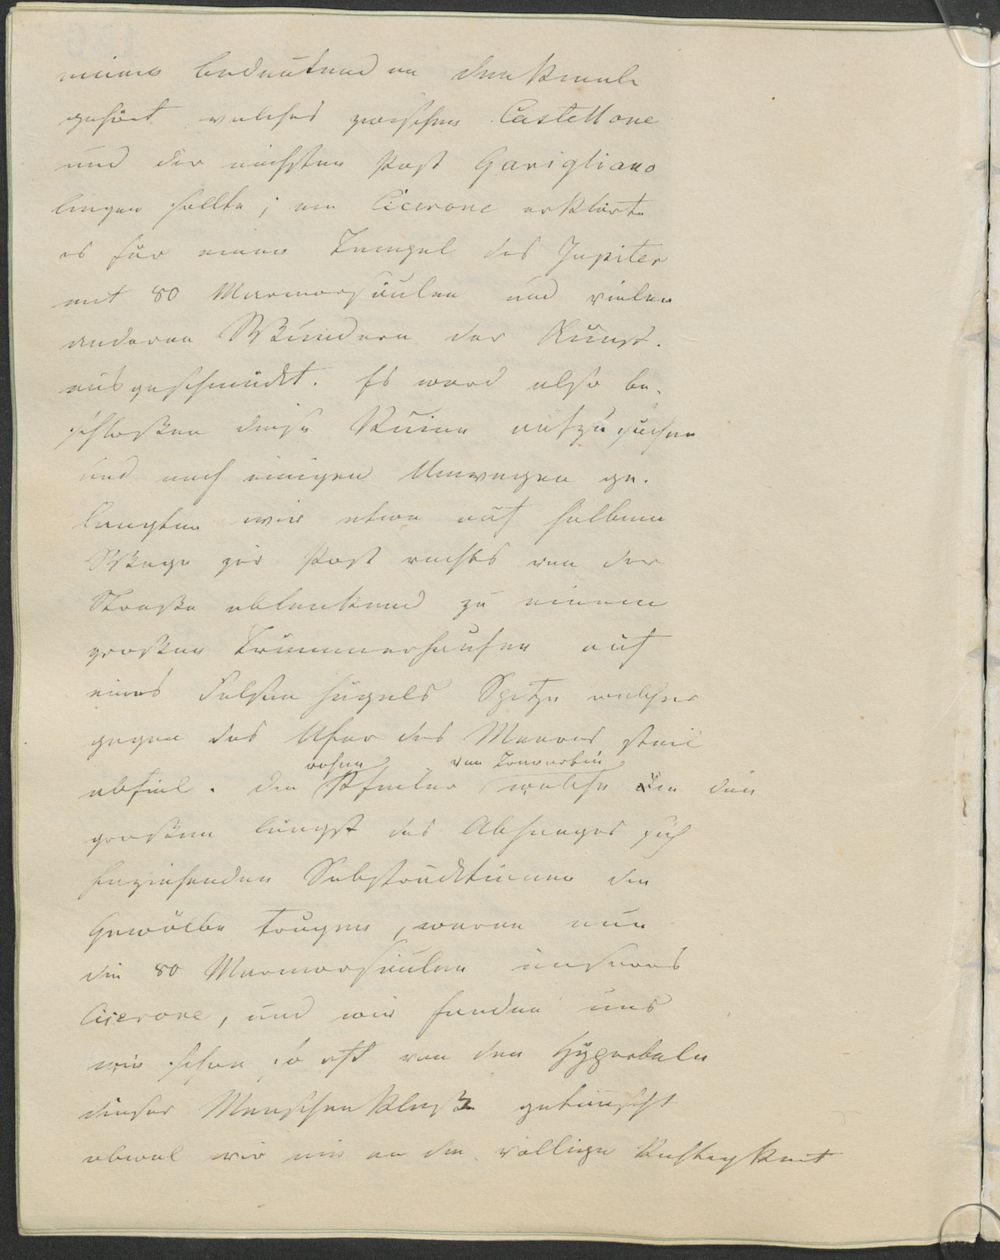 einem bedeutenden Denkmale
gehört welches zwischen Castellone
und der nächsten Post Garigliano
liegen sollte; ein Cicerone erklärte
es für einen Tempel des Jupiter
mit 80 Marmorsäulen und vielen
anderen Wundern der Kunst.
ausgeschmückt. Es ward also be-
schloßen diese Ruine aufzusuchen
und nach einigen Umwegen ge-
langten wir etwa auf halbem
Wege zur Post rechts von der
Straße ablenkend zu einem
großen Trümmerhaufen auf
eines Felsen hügels Spitze welcher
gegen das Ufer des Meeres steil
abfiel. Die rohen Pfeiler von Travertin welche in den
großen längst des Abhanges sich
hinziehenden Substruktionen die
Gewölbe trugen, waren nun
die 80 Marmorsäulen unseres
Cicerone, und wir fanden uns
wie schon so oft von den Hyperbeln
dieser Menschenklasse getäuscht
obwol wir uns an der völligen